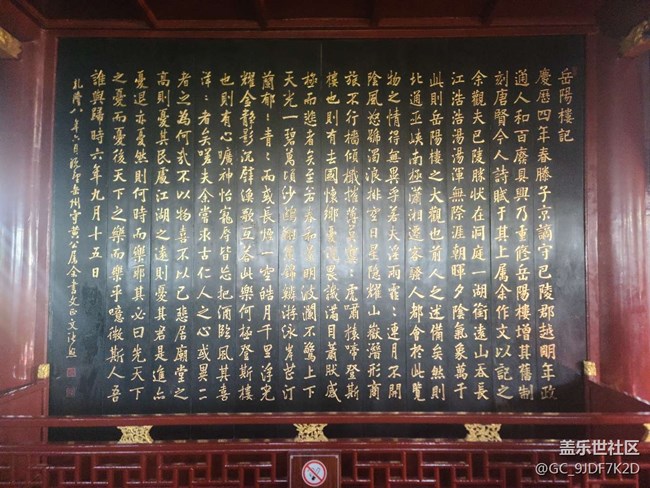 岳陽樓記
慶曆四年春滕子京謫守巴陵郡越明年政
通人和百廢具興乃重修岳陽樓增其舊制
刻唐賢今人詩賦于其上屬余作文以記之
余觀夫巴陵勝狀在洞庭一湖銜遠山吞長
江浩浩湯湯渾無際涯朝暉夕陰氣象萬千
此則岳陽樓之大觀也前人之述備矣然則
北通巫峽南極瀟湘遷客騷人都會於此覽
物之情得無異乎若夫淫雨霏〻連月不開
陰風怒號濁浪排空日星隱耀山嶽潛形商
旅不行檣傾檝摧薄暮冥〻虎嘯猿啼登斯
樓也則有去國懷鄉憂讒畏譏滿目蕭然感
極而悲者矣至若春和景明波瀾不驚上下
天光一碧萬頃沙鷗翔集錦鱗游泳岸芷汀
蘭郁〻青〻而或長煙一空皓月千里浮光
耀金靜影沉璧漁歌互答此樂何極登斯樓
也則有心曠神怡寵辱皆忘把酒臨風其喜
洋〻者矣嗟夫余嘗求古仁人之心或異二
者之為何哉不以物喜不以己悲居廟堂之
高則憂其民處江湖之遠則憂其君是進亦
憂退亦憂然則何時而樂耶其必曰先天下
之憂而憂後天下之樂而樂乎噫微斯人吾
誰與歸時六年九月十五日
乾隆八年六月既望岳州守黃公屬余書文正文張照
盖乐世社区
@GC_9JDF7K2D